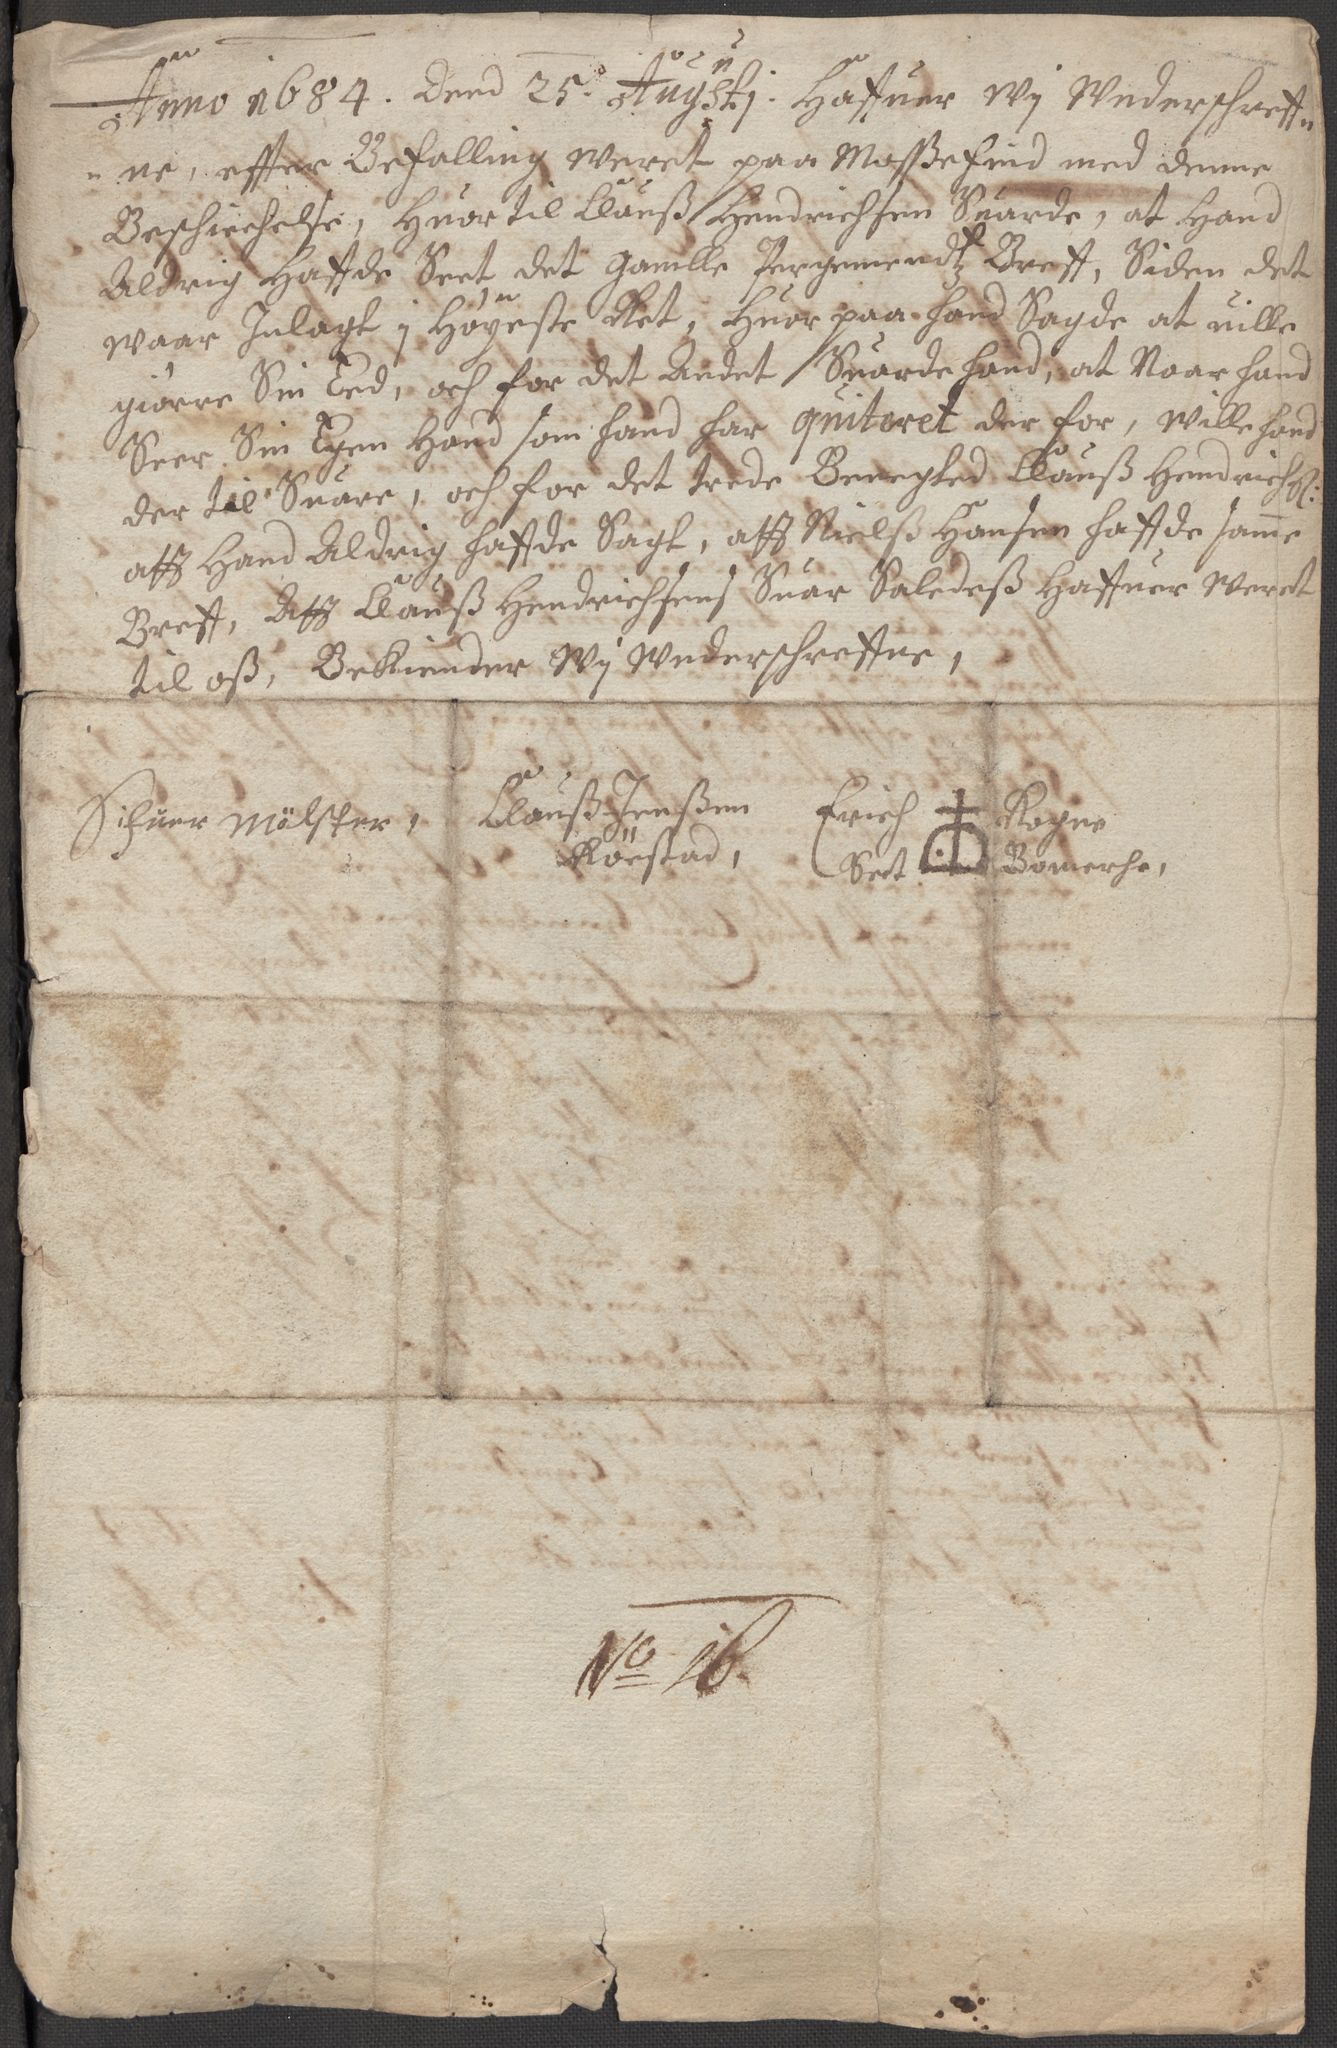 Anno 1684. Dend 25. Augustj. Haffuer Wj Wnderschreff=
=ne, effter Befalling Weret paa Mossefind med denne
Beschiechelse, Huor til Clauß Hendrichsen Suarde, at Hand
Aldrig Haffde Seet det gamlle Pergemendtz Breff, Siden det
Waar Inlagt j Høyeste Ret, Huor paa hand Sagde at uille
giørre Sin Eed, och for det Andet Suarde hand, at Naar hand
Seer Sin Egen Hand som hand har quiteret der for, Wille hand
der til Suare, och for det trede Benegted Clauß Hendrichs:
att Hand Aldrig haffde Sagt, att Nielß Hansen haffde samme
Breff, Att Clauß Hendrichsens Suar Saledeß Haffuer Weret
til oß, Bekiender Wj Wnderschreffne,
Sifuer Mölster, Clauß Jenßen Erich Rogne
Körstad, Sect Bomerche,
No 16.